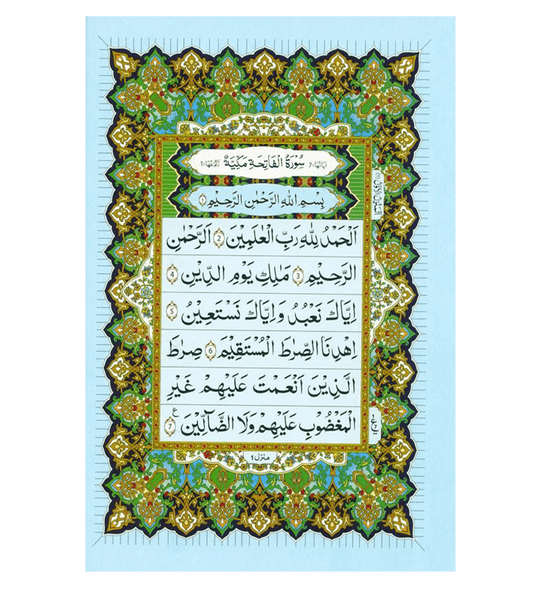 سُوْرَةُ الْفَاتِحَةِ مَكِّيَّةٌ
بِسْمِ اللهِ الرَّحْمٰنِ الرَّحِيْمِ ١
اَلْحَمْدُ لِلّٰهِ رَبِّ الْعٰلَمِيْنَ 2 الرَّحْمٰنِ
الرَّحِيْمِ 3 مٰلِكِ يَوْمِ الدِّيْنِ 4
اِيَّاكَ نَعْبُدُ وَاِيَّاكَ نَسْتَعِيْنُ 5
اِهْدِنَا الصِّرَاطَ الْمُسْتَقِيْمَ 6 صِرَاطَ
الَّذِيْنَ اَنْعَمْتَ عَلَيْهِمْ غَيْرِ
الْمَغْضُوْبِ عَلَيْهِمْ وَلَا الضَّآلِّيْنَ 7 ع
منزل ١